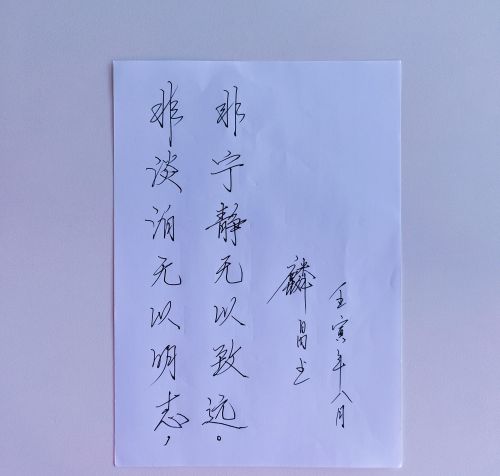 非淡泊无以明志，
非宁静无以致远。
麟昌书
壬寅年八月